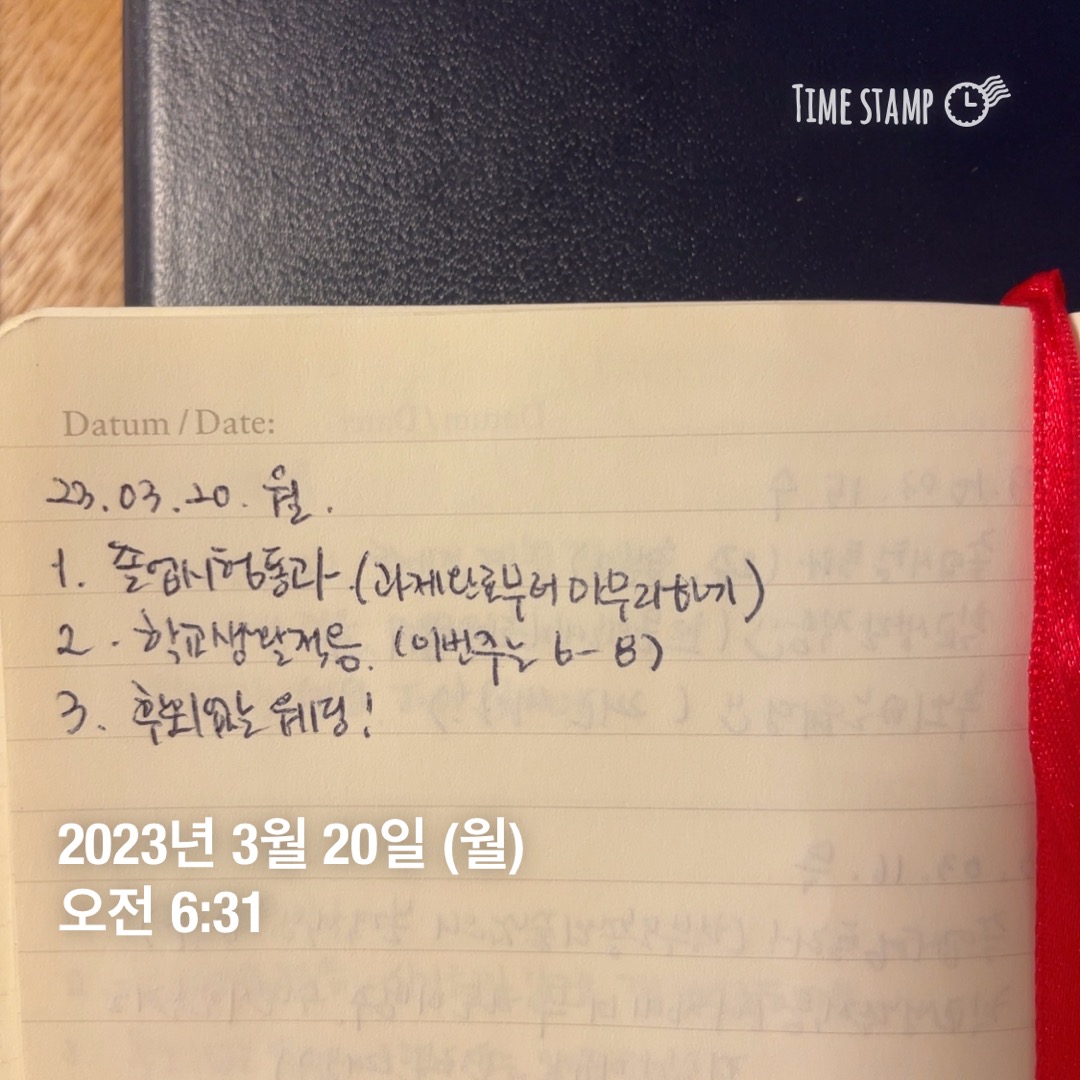 TIME STAMP
Datum / Date:
23.03.20. 월.
1. 졸업시험통과 (과제완료부터 마무리하기)
2. 학교생활적응. (이번주는 6-8)
3. 후회없는 웨딩!
2023년 3월 20일 (월)
오전 6:31